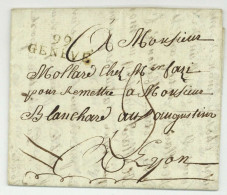 99
GENEVE
A Monsieur
Mollard Chez Mr
pour Remettre a Monsieur
Blanchard aux augustins
A Lyon